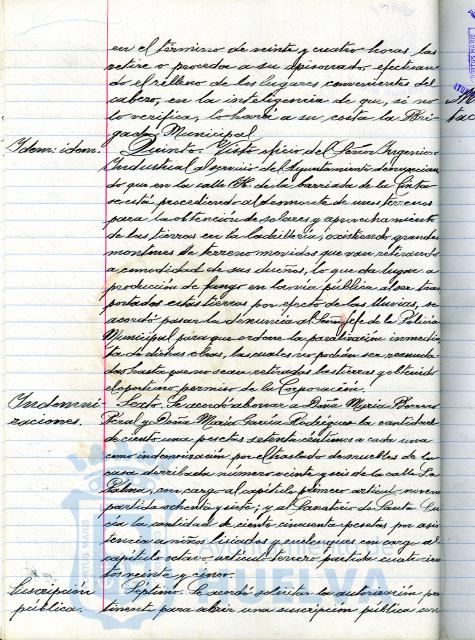 en el término de veinte y cuatro horas las
retire o proceda a su apisonado efectuan-
do el relleno de los lugares convenientes del
cabezo, en la inteligencia de que, si no
lo verifica, lo hará a su costa la Bri-
gada Municipal
Idem: idem.
Quinto. Visto oficio del Señor Ingeniero
Industrial al servicio del Ayuntamiento denuncian-
do que en la calle H. de la barriada de la Cinta
se está procediendo al desmonte de unos terrenos
para la obtención de solares y aprovechamiento
de las tierras en la ladrillería, existiendo grandes
montones de terreno movidos que van retirando
a comodidad de sus dueños, lo que da lugar a
producción de fango en la vía pública al ser tras
portados estas tierras por efecto de las lluvias, se
acordó pasar la denuncia al Señor Jefe de la Policia
Municipal para que ordene la paralización inmedia
ta de dichas obras, las cuales no podrán ser reanuda
das hasta que no sean retiradas las tierras y obtenido
el oportuno permiso de la Corporación.
Indemni-
zaciones.
Sexto. Se acordó abonar a Doña Maria Borrero
Real y Doña Maria Garcia Rodriguez la cantidad
de ciento una pesetas setenta centimos a cada una
como indemnización por el traslado de muebles de la
casa derribada número veinte y seis de la calle La
Palma, con cargo al capítulo primero, artículo noveno
partida ochenta y siete; y al Sanatorio de Santa Lu-
cía la cantidad de ciento cincuenta pesetas por asis
tencia a niños lisiados y enclenques con cargo al
capítulo octavo, artículo tercero partida cuatrocien
tos veinte y cinco.
Suscripción
pública.
Septimo. Se acordó solicitar la autorización per
tinente para abrir una suscripción pública con
Ayuntamiento de
HUELVA